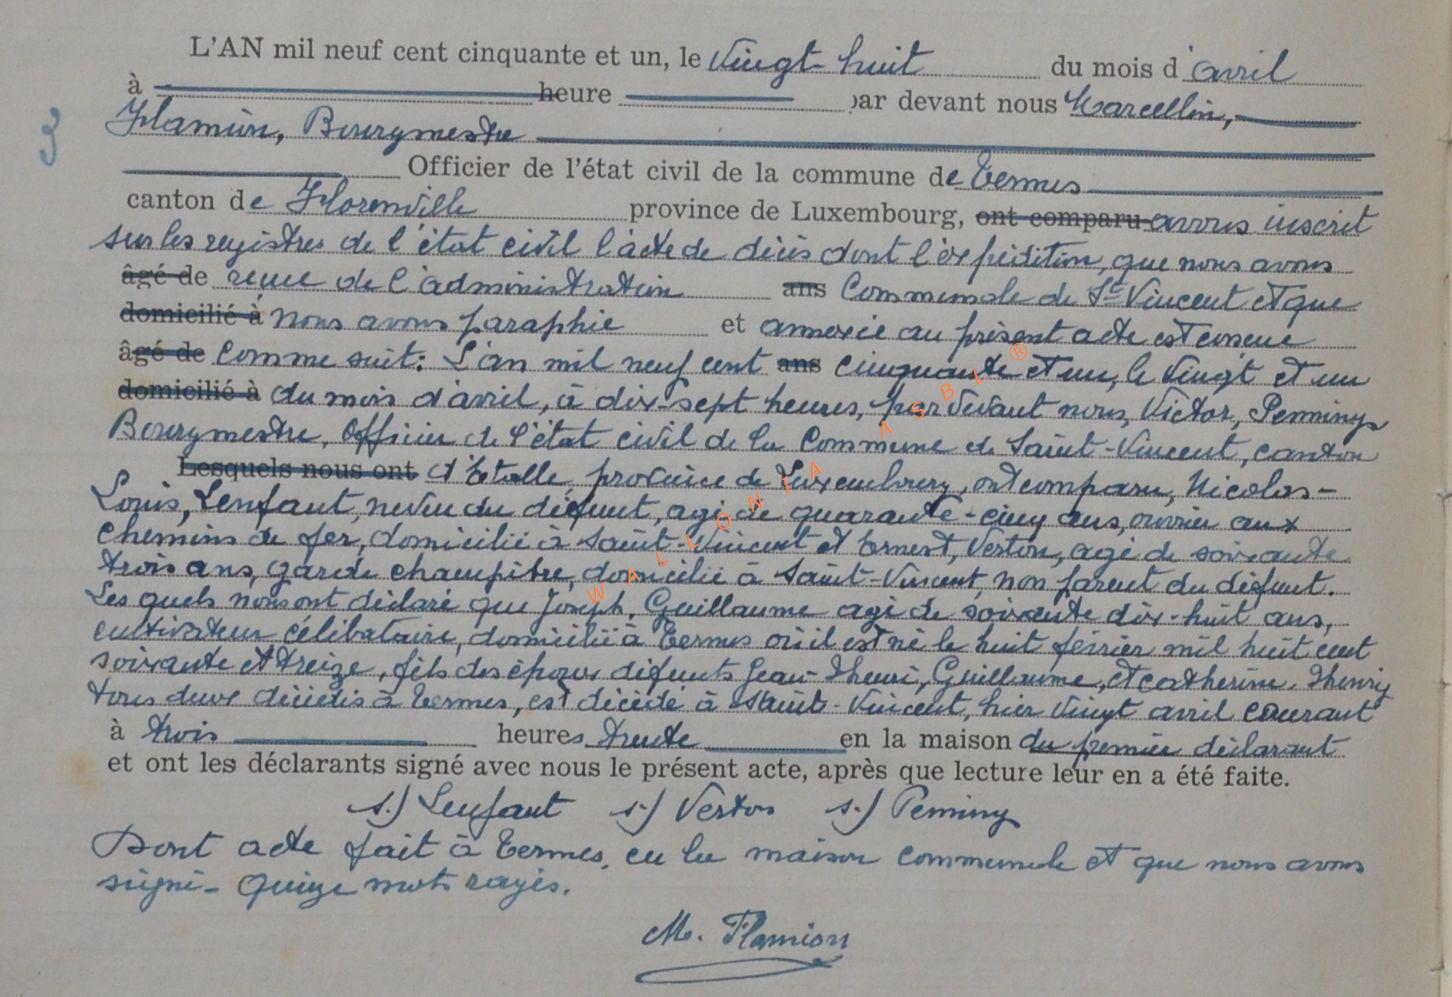 L'AN mil neuf cent cinquante et un, le Vingt-huit du mois d'avril
à heure par devant nous Marcellin,
Flamion, Bourgmestre
3
Officier de l'état civil de la commune de Termes
canton de Florenville province de Luxembourg, ont comparu avons inscrit
sur les registres de l'état civil l'acte de décès dont l'expédition, que nous avons
âgé de reçue de l'administration ans Communale de St Vincent et que
domicilié à nous avons paraphée et annexée au présent acte est conçue
âgé de comme suit: L'an mil neuf cent ans cinquante et un, le vingt et un
domicilié à du mois d'avril, à dix-sept heures, par devant nous, Victor, Peminy
Bourgmestre, Officier de l'état civil de la Commune de Saint-Vincent, canton
Lesquels nous ont d'Etalle province de Luxembourg, ont comparu, Nicolas-
Louis, Lenfant, neveu du défunt, agé de quarante-cinq ans, ouvrier aux
chemins de fer, domicilié à Saint-Vincent et Ernest, Verton, agé de soixante
trois ans, garde champêtre, domicilié à Saint-Vincent, non parent du défunt.
Les quels nous ont déclaré que Joseph, Guillaume agé de soixante dix-huit ans,
cultivateur célibataire, domicilié à Termes où il est né le huit février mil huit cent
soixante et treize, fils des époux défunts Jean-Thenri, Guillaume, et catherine. Thenry
tous deux décédés à Termes, est décédé à Saint-Vincent, hier vingt avril courant
à trois heures trente en la maison du premier déclarant
et ont les déclarants signé avec nous le présent acte, après que lecture leur en a été faite.
s.) Lenfant s.) Verton s.) Peminy
Dont acte fait à Termes, en la maison communale et que nous avons
signé - Quinze mots rayés.
M. Flamion
WALLONIA ASBL ®